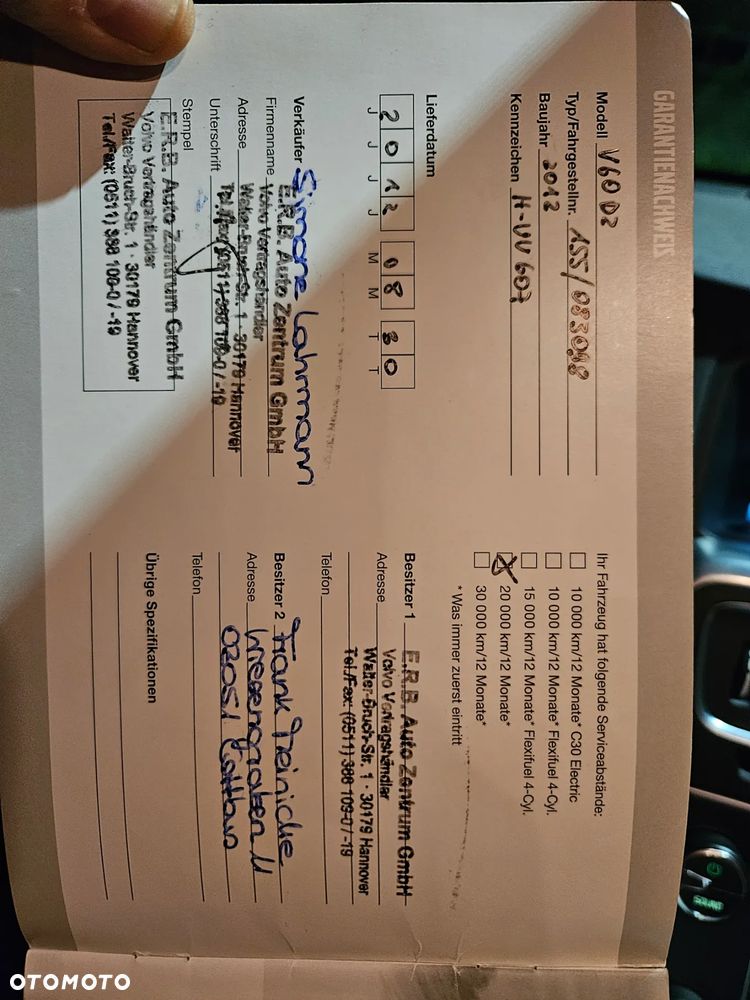 GARANTIENACHWEIS
Modell V60 D2
Typ/Fahrgestellnr. 155/083098
Baujahr 2012
Kennzeichen H-UV 607
Lieferdatum
2 0 1 2 0 8 3 0
J J J J M M T T
Verkäufer Simone Lahrmann
Firmenname E.R.B. Auto Zentrum GmbH
Volvo Vertragshändler
Adresse Walter-Bruch-Str. 1 · 30179 Hannover
Tel./Fax: (0511) 388 109-0 / -19
Unterschrift
Stempel
E.R.B. Auto Zentrum GmbH
Volvo Vertragshändler
Walter-Bruch-Str. 1 · 30179 Hannover
Tel./Fax: (0511) 388 109-0 / -19
Ihr Fahrzeug hat folgende Serviceabstände:
10 000 km/12 Monate* C30 Electric
10 000 km/12 Monate* Flexifuel 4-Cyl.
15 000 km/12 Monate* Flexifuel 4-Cyl.
20 000 km/12 Monate*
30 000 km/12 Monate*
* Was immer zuerst eintritt
Besitzer 1 E.R.B. Auto Zentrum GmbH
Volvo Vertragshändler
Adresse Walter-Bruch-Str. 1 · 30179 Hannover
Tel./Fax: (0511) 388 109-0 / -19
Telefon
Besitzer 2 Frank Meinicke
Adresse
03051 Cottbus
Telefon
Übrige Spezifikationen
OTOMOTO